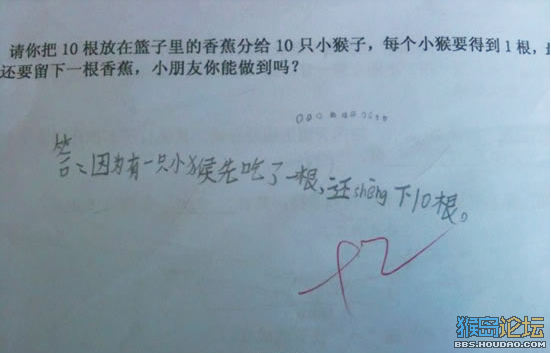 请你把10根放在篮子里的香蕉分给10只小猴子，每个小猴要得到1根，
还要留下一根香蕉，小朋友你能做到吗？
答：因为有一只小猴先吃了一根，还shèng下10根。
猴岛论坛
BBS.HOUDAO.COM